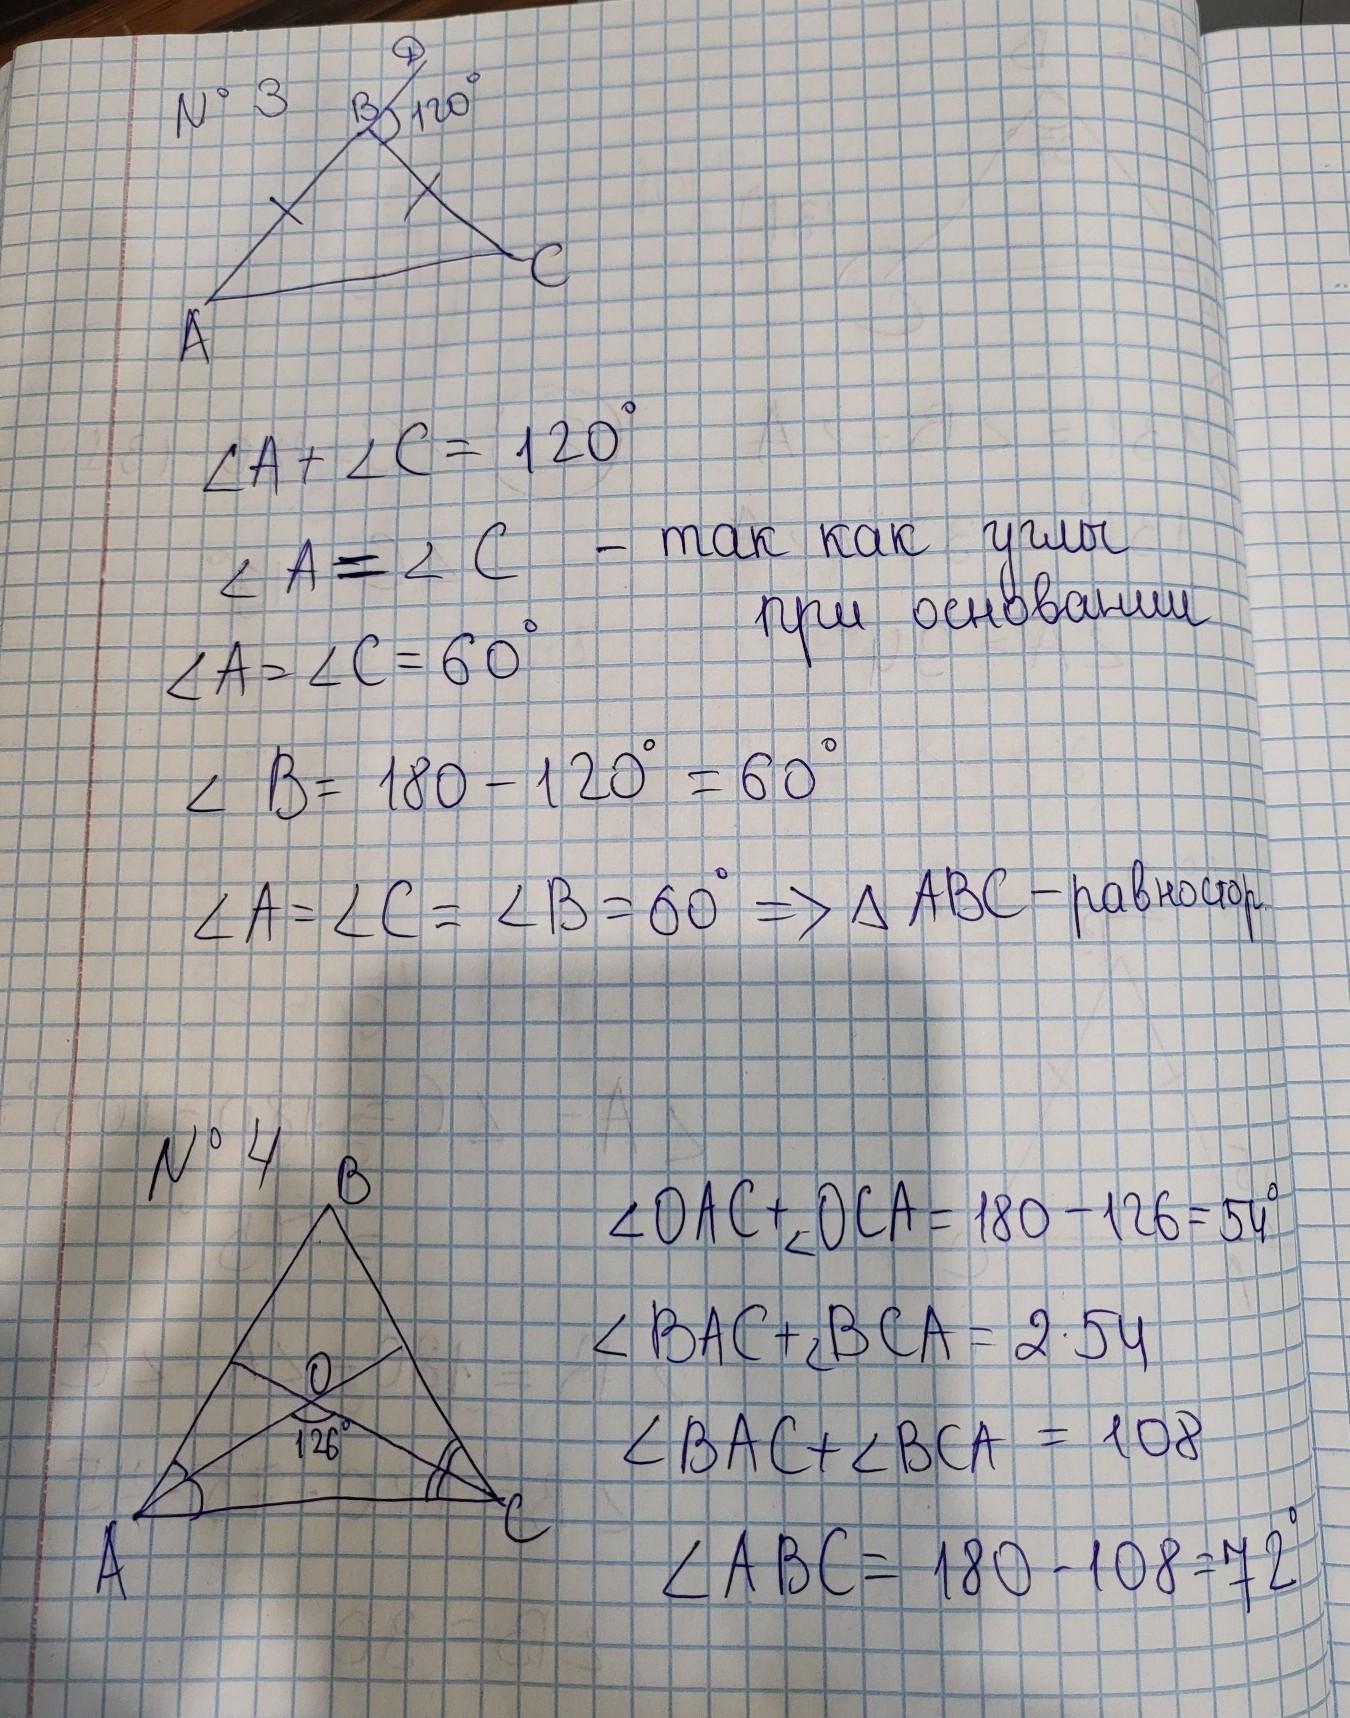 N° 3
D
B 120°
C
A
∠A + ∠C = 120°
∠A = ∠C - так как углы
при основании
∠A = ∠C = 60°
∠B = 180 - 120° = 60°
∠A = ∠C = ∠B = 60° => △ABC - равностор.
N° 4
B
O
126°
A
C
∠OAC + ∠OCA = 180 - 126 = 54°
∠BAC + ∠BCA = 2·54
∠BAC + ∠BCA = 108
∠ABC = 180 - 108 = 72°